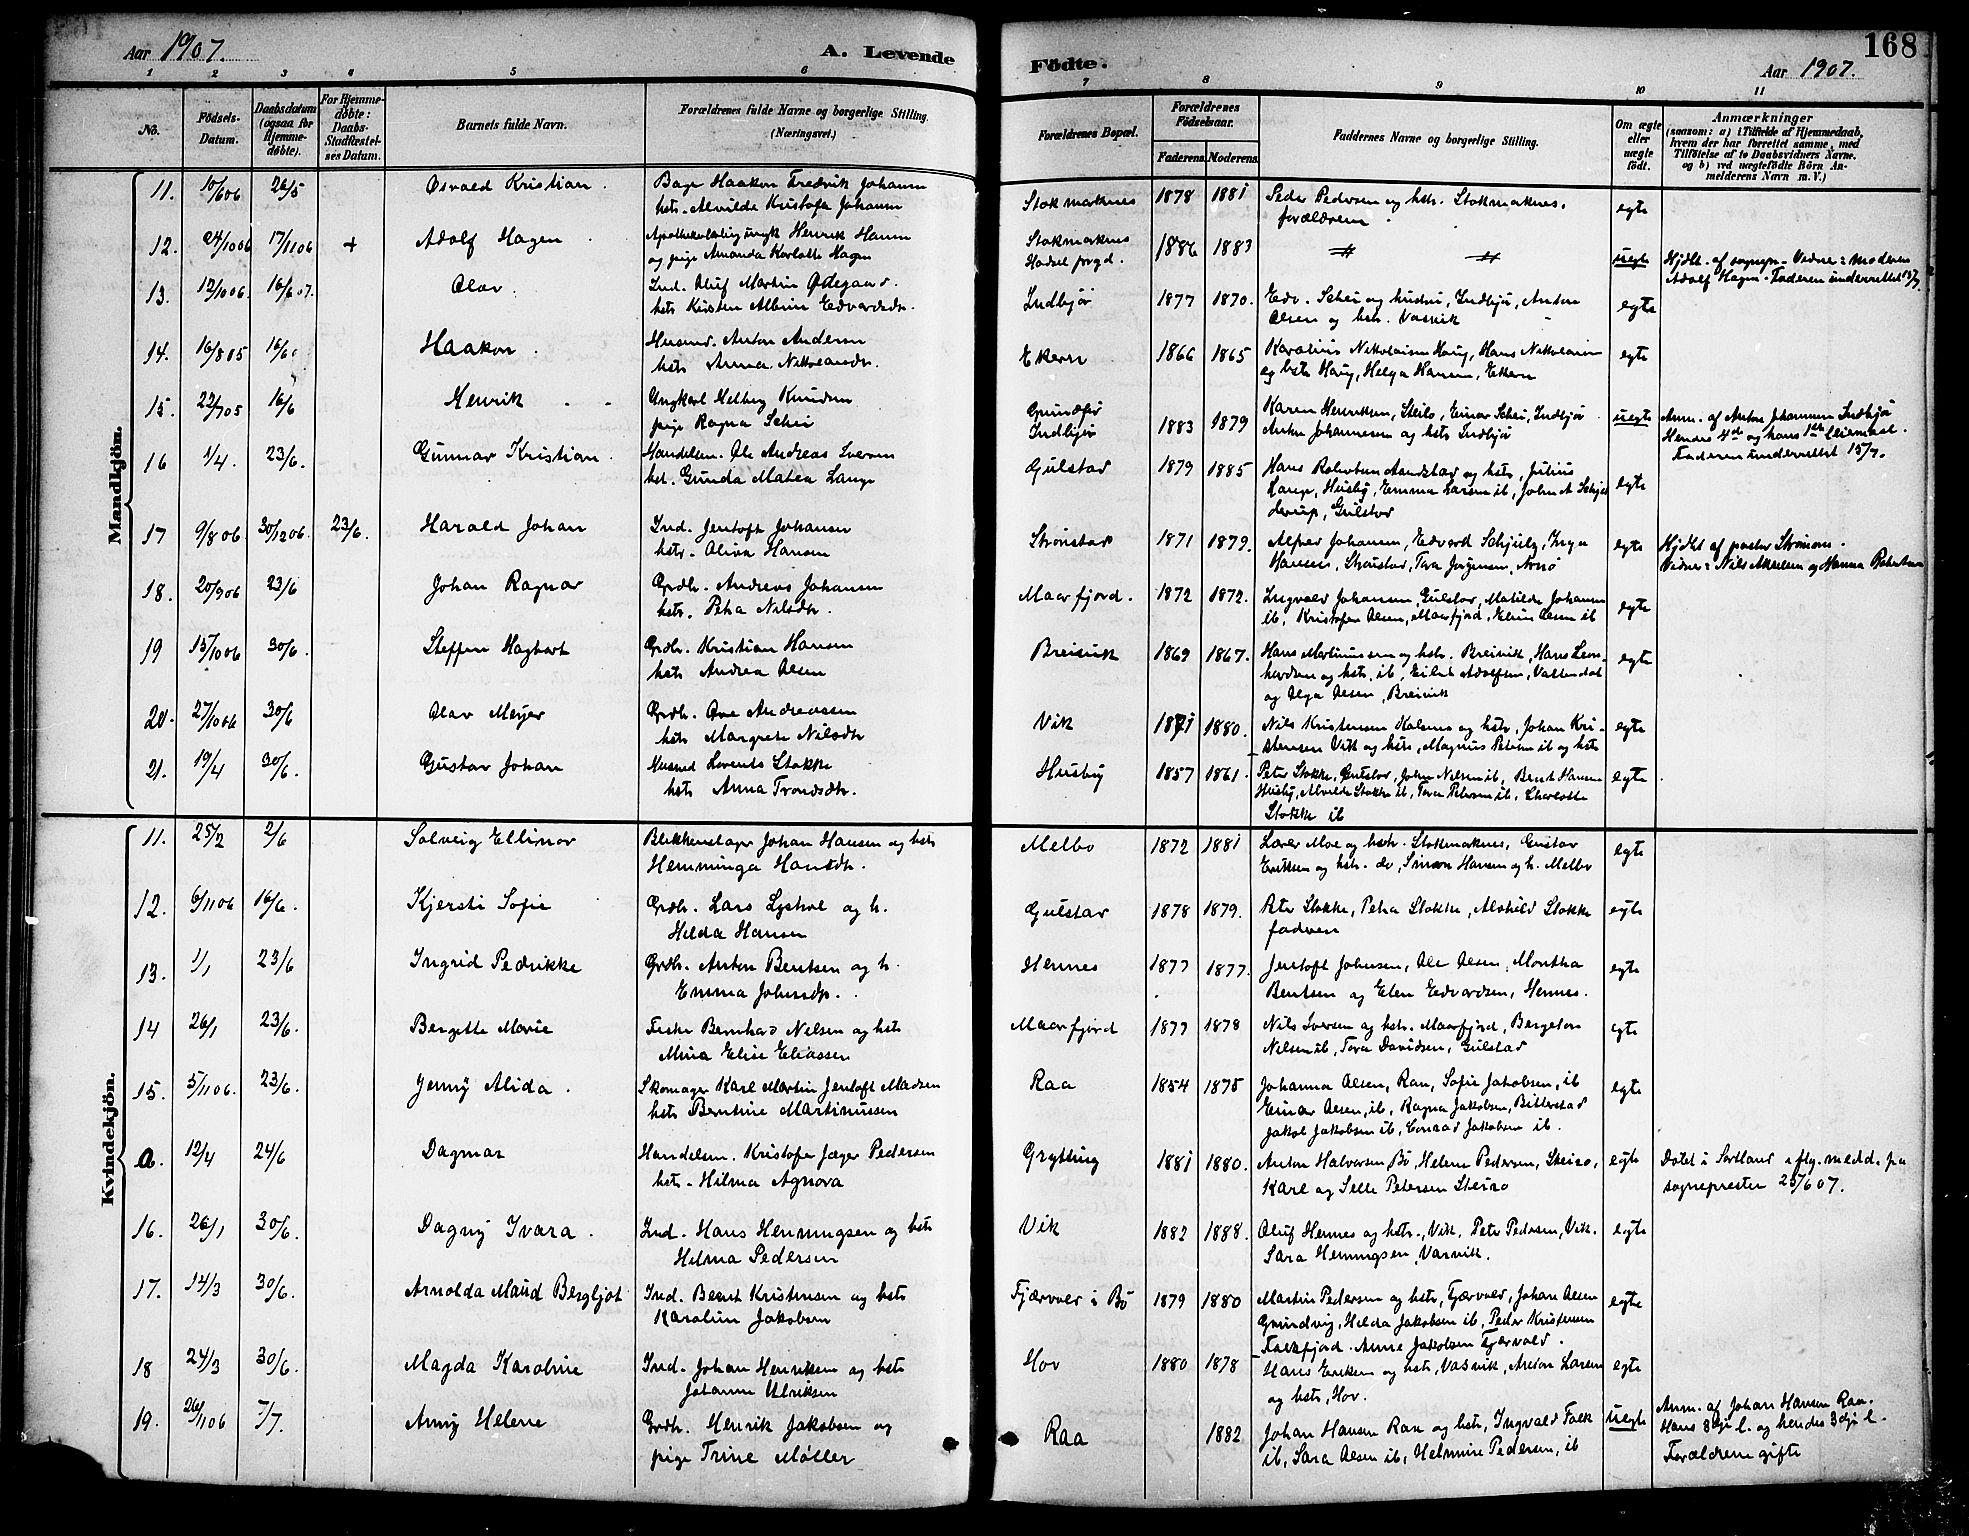 Aar 1907.
A. Levende
Födte.
Aar 1907.
168
1 2 3 4 5 6 7 8 9 10 11
No.
Födsels-Datum.
Daabsdatum (ogsaa for Hjemmedöbte).
For Hjemmedöbte: Daabs-Stadfæstelses Datum.
Barnets fulde Navn.
Forældrenes fulde Navne og borgerlige Stilling. (Næringsvei.)
Forældrenes Bopæl.
Forældrenes Födselsaar.
Faderens. Moderens.
Faddernes Navne og borgerlige Stilling.
Om ægte eller uægte födt.
Anmærkninger
(saasom: a) i Tilfælde af Hjemmedaab, hvem der har forrettet samme, med Tilföielse af to Daabsvidners Navne. og b) ved uægtefödte Börn Anmelderens Navn m. V.)
Mandkjön.
11. 10/6 06 26/5 Osvald Kristian. Bager Haakon Fredrik Johansen
hstr. Alvilde Kristofa Johansen Stokmarknes 1878 1881 Peder Pedersen og hstr. Stokmarknes, forældrene. egte
12. 24/10 06 17/11 06 + Adolf Hagen Henrik Hansen
og pige Amanda Karlotte Hagen Stokmarknes
Hadsel prgd. 1886 1883 uegte Hjdbt. af sognepr. Vidne: moderen
Adolf Hagen. Faderen underrettet 13/7.
13. 12/10 06 16/6 07. Olav. Ind. Oluf Martin Ødegaard.
hstr. Kirsten Albrine Edvardsdr. Indbjør 1877 1870. Edv. Schei og hustru, Indbjør, Anton
Olsen og hstr. Vasvik egte
14. 16/8 05 16/6 Haakon. Husmd. Anton Andersen
hstr. Anna Nikolaisdr. Ekren 1866 1865 Karolius Nikolaisen Haug, Hans Nikolaisen
og hstr. Haug, Helga Hansen, Ekren egte
15. 22/7 05 16/6 Henrik Ungkarl Melberg Knudsen
pige Ragna Schei Grundfør
Indbjør 1883 1879 Karen Henriksen, Steilo, Einar Schei, Indbjør
Anton Johannesen og hstr. Indbjør uegte Anm. af Anton Johannesen Indbjør
Hendes 4de og hans 1ste leiermaal.
Faderen underrettet 15/7.
16 1/4. 23/6. Gunnar Kristian. Handelsm. Ole Andreas Iversen
hst. Gunda Matea Lange Gulstad 1879 1885 Hans Robertsen Sandstad og hstr. Julius
Lange, Husby, Emma Larsen ib, John A Schjel
derup, Gulstad egte
17 9/8 06 30/12 06. 23/6. Harald Johan Ind. Jentoft Johansen
hstr. Oliva Hansen Strønstad 1871 1879. Alfred Johansen, Edvard Schjelg, Inga
Hansen, Strønstad, Tora Jørgensen, Arnø egte Hjdbt af pastor Strømm.
Vidner: Nils Akselsen og Hanna Robertsen
18. 20/9 06 23/6 Johan Ragnar Grdbr. Andreas Johansen
hstr. Petra Nilsdtr. Maarfjord. 1872 1872. Ingvald Johansen, Gulstad, Matilde Johansen
ib, Kristofer Olsen, Maarfjord, Eline Olsen ib egte
19 15/10 06 30/6. Steffen Hagbart Grdbr. Kristian Hansen
hstr Andrea Olsen Breivik 1869 1867. Hans Martinussen og hstr. Breivik, Hans Leon-
hardsen og hstr. ib, Eilert Adolfsen, Vattendal
og Olga Olsen, Breivik egte
20. 27/10 06 30/6 Olav Meyer Grdbr. Ove Andreassen
hstr Margrete Nilsdtr Vik 1871 1880. Nils Kristensen Kalsnes og hstr, Johan Kri-
stensen Vik og hstr, Magnus Petersen ib og hstr egte
21. 19/4 30/6. Gustav Johan Husmd Lorents Stokke
hstr Anna Trondsdtr. Husby 1857 1861. Peter Stokke, Gulstad, John Nilsen ib, Berit Hansen
Husby, Alvilde Stokke ib, Tora Petersen ib, Charlotte
Stokke ib egte
Kvindekjön.
11. 25/2 2/6 Solveig Ellinor Blikkenslager Johan Hansen og hstr
Hemminga Hansdtr. Melbo 1872 1881 Lærer Moe og hstr. Stokmarknes, Gustav
Eriksen og hstr. do, Simon Hansen og h. Melbo egte
12. 6/11 06 16/6. Kjersti Sofie Grdbr. Lars Lyshol og h.
Hilda Hansen Gulstad 1878 1879. Peter Stokke, Petra Stokke, Alvhild Stokke
fadren egte
13. 1/1 23/6 Ingrid Pedrikke Grdbr. Anton Bentsen og h.
Emma Johnsdtr. Hennes 1877 1877. Jentoft Johnsen, Ole Olsen, Montha
Bentsen og Elen Edvardsen, Hennes. egte
14 26/1 23/6. Bergitte Marie Fisker Bernhard Nilsen og hstr
Mina Elise Eliassen Maarfjord 1877 1878 Nils Iversen og hstr. Maarfjord, Bergeton
Nilsen ib, Tora Davidsen, Gulstad egte
15. 5/11 06. 23/6. Jenny Alida. Skomager Karl Martin Jentoft Madsen
hstr Berntine Martinussen Raa 1854 1875 Johanna Olsen, Raa, Sofie Jakobsen, ib
Einar Olsen, ib, Ragna Jakobsen, Bitterstad
Jakob Jakobsen ib, Conrad Jakobsen ib. egte
a. 12/4 24/6 Dagmar Handelsm. Kristofer Jæger Pedersen
hstr. Hilma Agnora Grytting 1881 1880. Anton Halvorsen Bø, Helene Pedersen, Steiro,
Karl og Selle Petersen Steiro egte Døbt i Sortland iflg. medd. fra
sognepresten 25/6 07.
16. 26/1 30/6. Dagny Ivara. Ind. Hans Henningsen og hstr
Hilma Pedersen Vik 1882 1888. Oluf Hennes og hstr., Vik, Peter Pedersen, Vik.
Sara Henningsen, Vasvik. egte
17. 14/3 30/6. Arnolda Maud Bergljot Ind. Bernt Kristensen og hstr
Karoline Jakobsen Fjærvoll i Bø 1879 1880 Martin Pedersen og hstr, Fjærvold, Johan Olsen
Grundvig, Hilda Jakobsen ib, Peder Kristensen
Falkfjord. Anne Jakobsen Fjærvold. egte
18 24/3 30/6. Magda Karoline Ind. Johan Henriksen og hstr
Johanne Ulriksen Hov 1880 1878 Hans Eriksen og hstr, Vasvik, Anton Larsen
og hstr, Hov. egte
19. 26/11 06 7/7. Anny Helene Grdbr. Henrik Jakobsen og
pige Trine Møller Raa 1882 Johan Hansen Raa og hstr, Ingvald Falk
ib, Sara Olsen ib, Helmine Pedersen, ib uegte Anm. af Johan Hansen Raa.
Hans 3dje l. og hendes 3dje l.
Forældrene gifte